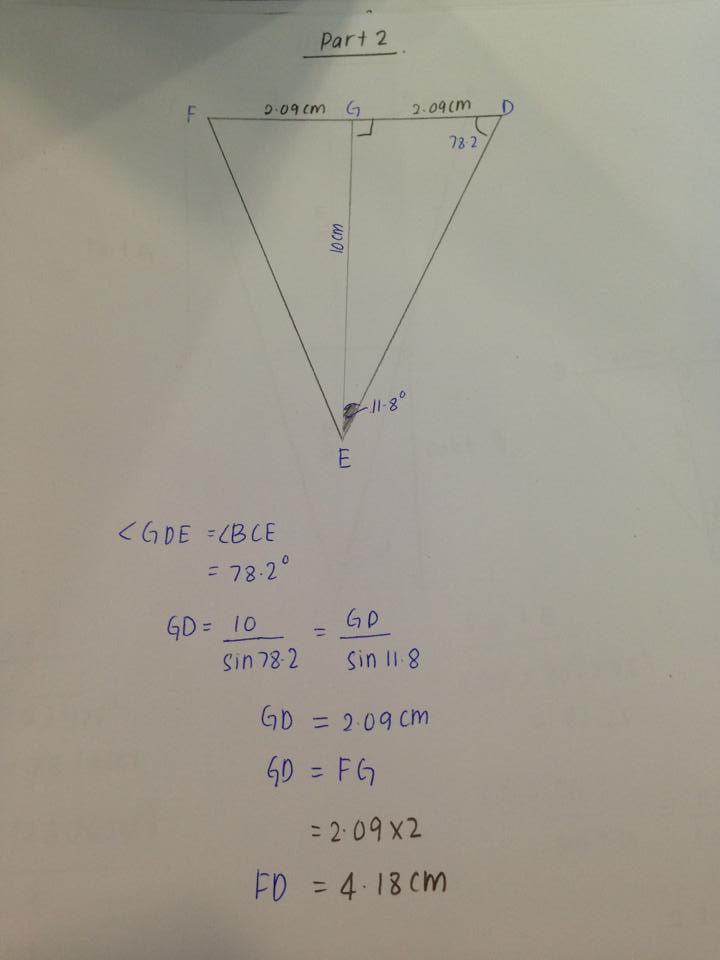 Part 2.
F 2.09cm G 2.09cm D
78.2
10cm
11.8°
E
<GDE = <BCE
= 78.2°
GD = 10/sin 78.2 = GD/sin 11.8
GD = 2.09cm
GD = FG
= 2.09×2
FD = 4.18cm